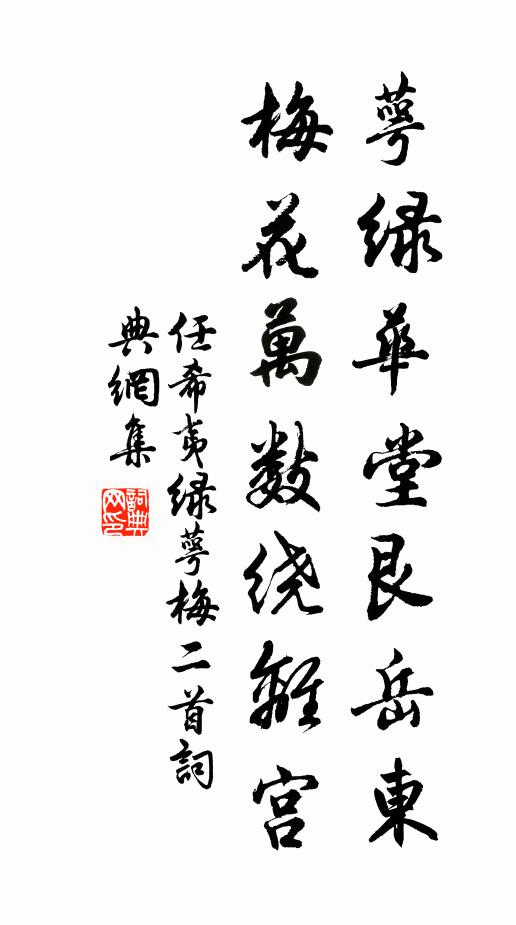 萼緑華堂艮岳東
梅花萬數繞離宮
任希夷緑萼梅二首詞
典網集
詞典网印